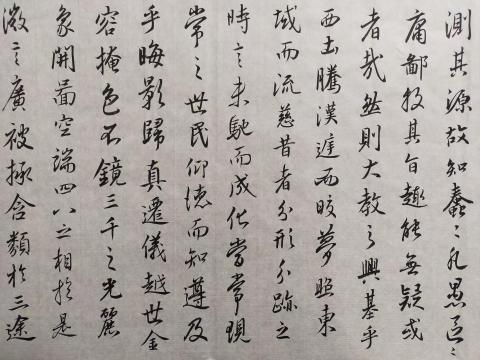 測其源故知蠢〻凡愚區〻
庸鄙投其旨趣能無疑或
者哉然則大教之興基乎
西土騰漢庭而皎夢照東
域而流慈昔者分形分跡之
時言未馳而成化當常現
常之世民仰德而知遵及
乎晦影歸真遷儀越世金
容掩色不鏡三千之光麗
象開圖空端四八之相於是
微言廣被拯含類於三途